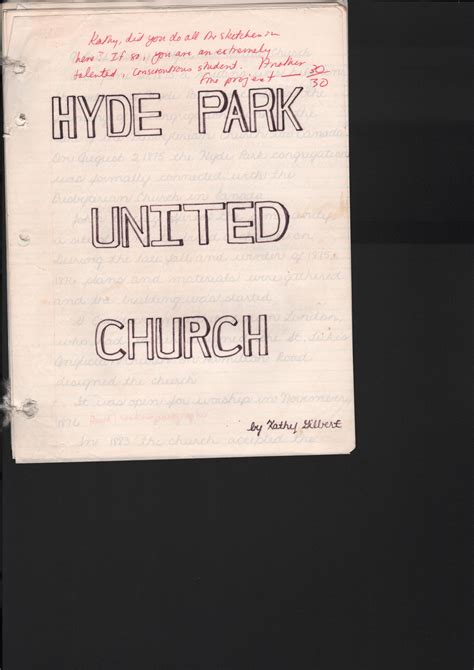 Kathy, did you do all the sketches in
here? If so, you are an extremely
talented, conscientious student. Another
fine project — 30/30
HYDE PARK
On August 2, 1875 the Hyde Park congregation
was formally connected with the
Presbyterian Church in Canada
UNITED
During the late fall and winter of 1875 &
1876 plans and materials were gathered
and the building was started
London,
CHURCH
the St. Luke's
Anglican Hamilton Road
designed the church
It was open for worship in November,
1876
by Kathy Gilbert
In 1883 the church accepted the